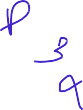 P
3
9